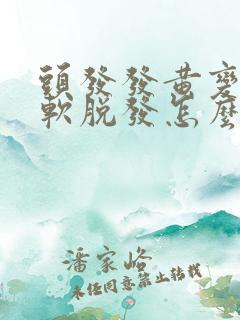 頭發發黃變
軟脫發怎麼
潘家峪
未经同意禁止转载